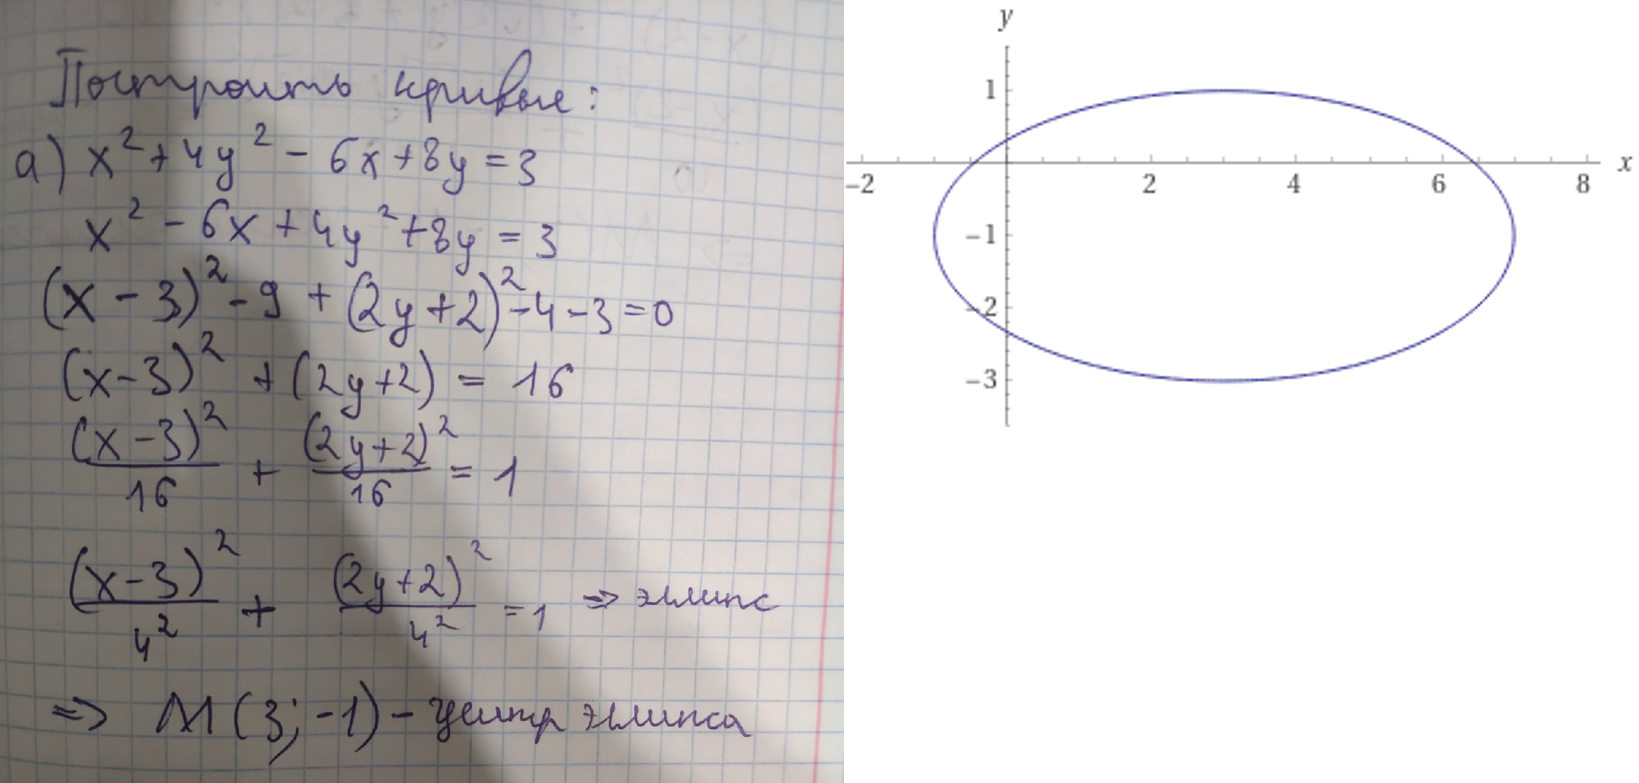 Построить кривые:
а) x² + 4y² - 6x + 8y = 3
x² - 6x + 4y² + 8y = 3
(x - 3)² - 9 + (2y + 2)² - 4 - 3 = 0
(x - 3)² + (2y + 2) = 16
(x - 3)²/16 + (2y + 2)²/16 = 1
(x - 3)²/4² + (2y + 2)²/4² = 1 ⇒ эллипс
⇒ M (3; -1) - центр эллипса
y
1
-2 2 4 6 8 x
-1
-2
-3